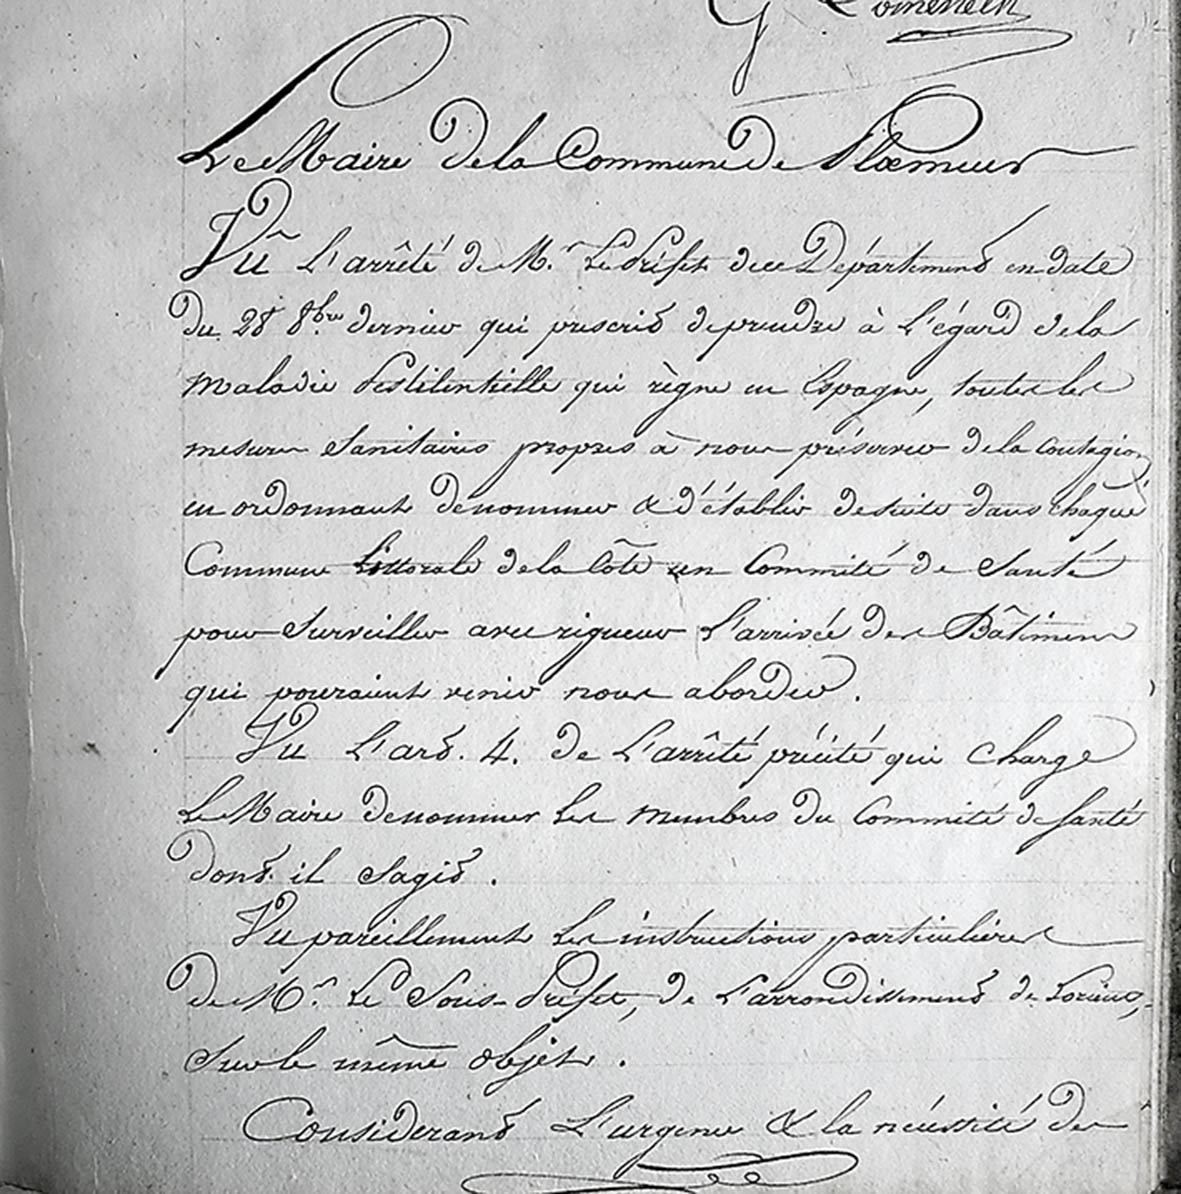 Le Maire De la Commune De Plœmeur
Vû L'arrêté de M.r Le Préfet du Département en date
du 28 8.bre dernier qui prescrit de prendre à L'égard de la
maladie Pestilentielle qui règne en Espagne, toutes les
mesures Sanitaires propres à nous préserver de la contagion
en ordonnant de nommer & d'établir de suite dans chaque
Commune Littorale de la Côte un Commité de Santé
pour Surveiller avec rigueur L'arrivée des Bâtimens
qui pouraient venir nous aborder.
Vu L'art. 4. de L'arrêté précité qui charge
Le Maire de nommer Les membres du Commité de Santé
dont il Sagit.
Vu pareillement Les instructions particulières
de M.r Le Sous-Préfet, de L'arrondissement de Lorient,
Sur le même objet.
Considerant L'urgence & la nécessité des